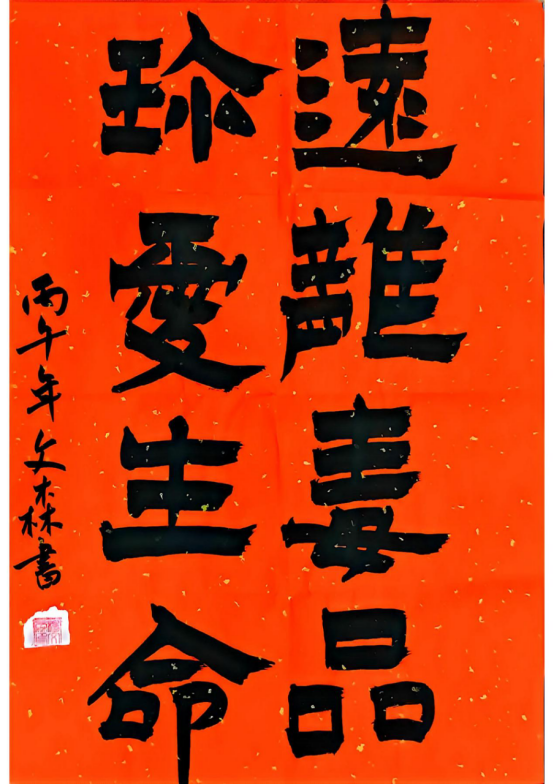 遠離毒品
珍愛生命
丙午年文森書